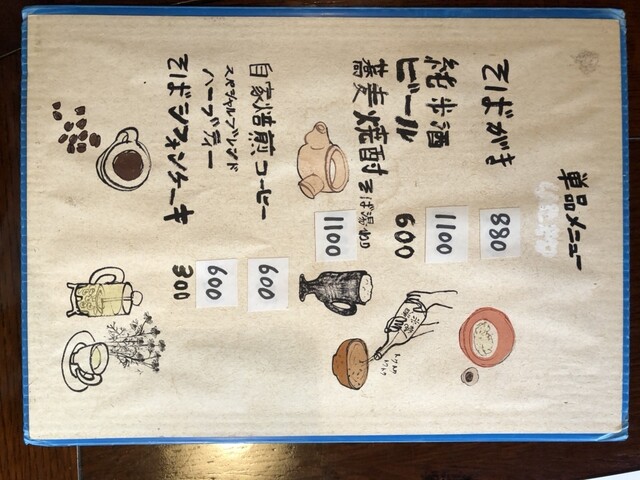 単品メニュー
そばがき 880
純米酒 1100
ビール 600
蕎麦焼酎 そば湯わり 1100
自家焙煎コーヒー 600
スペシャルブレンド
ハーブティー 600
そばシフォンケーキ 300
トクトク
トクトク